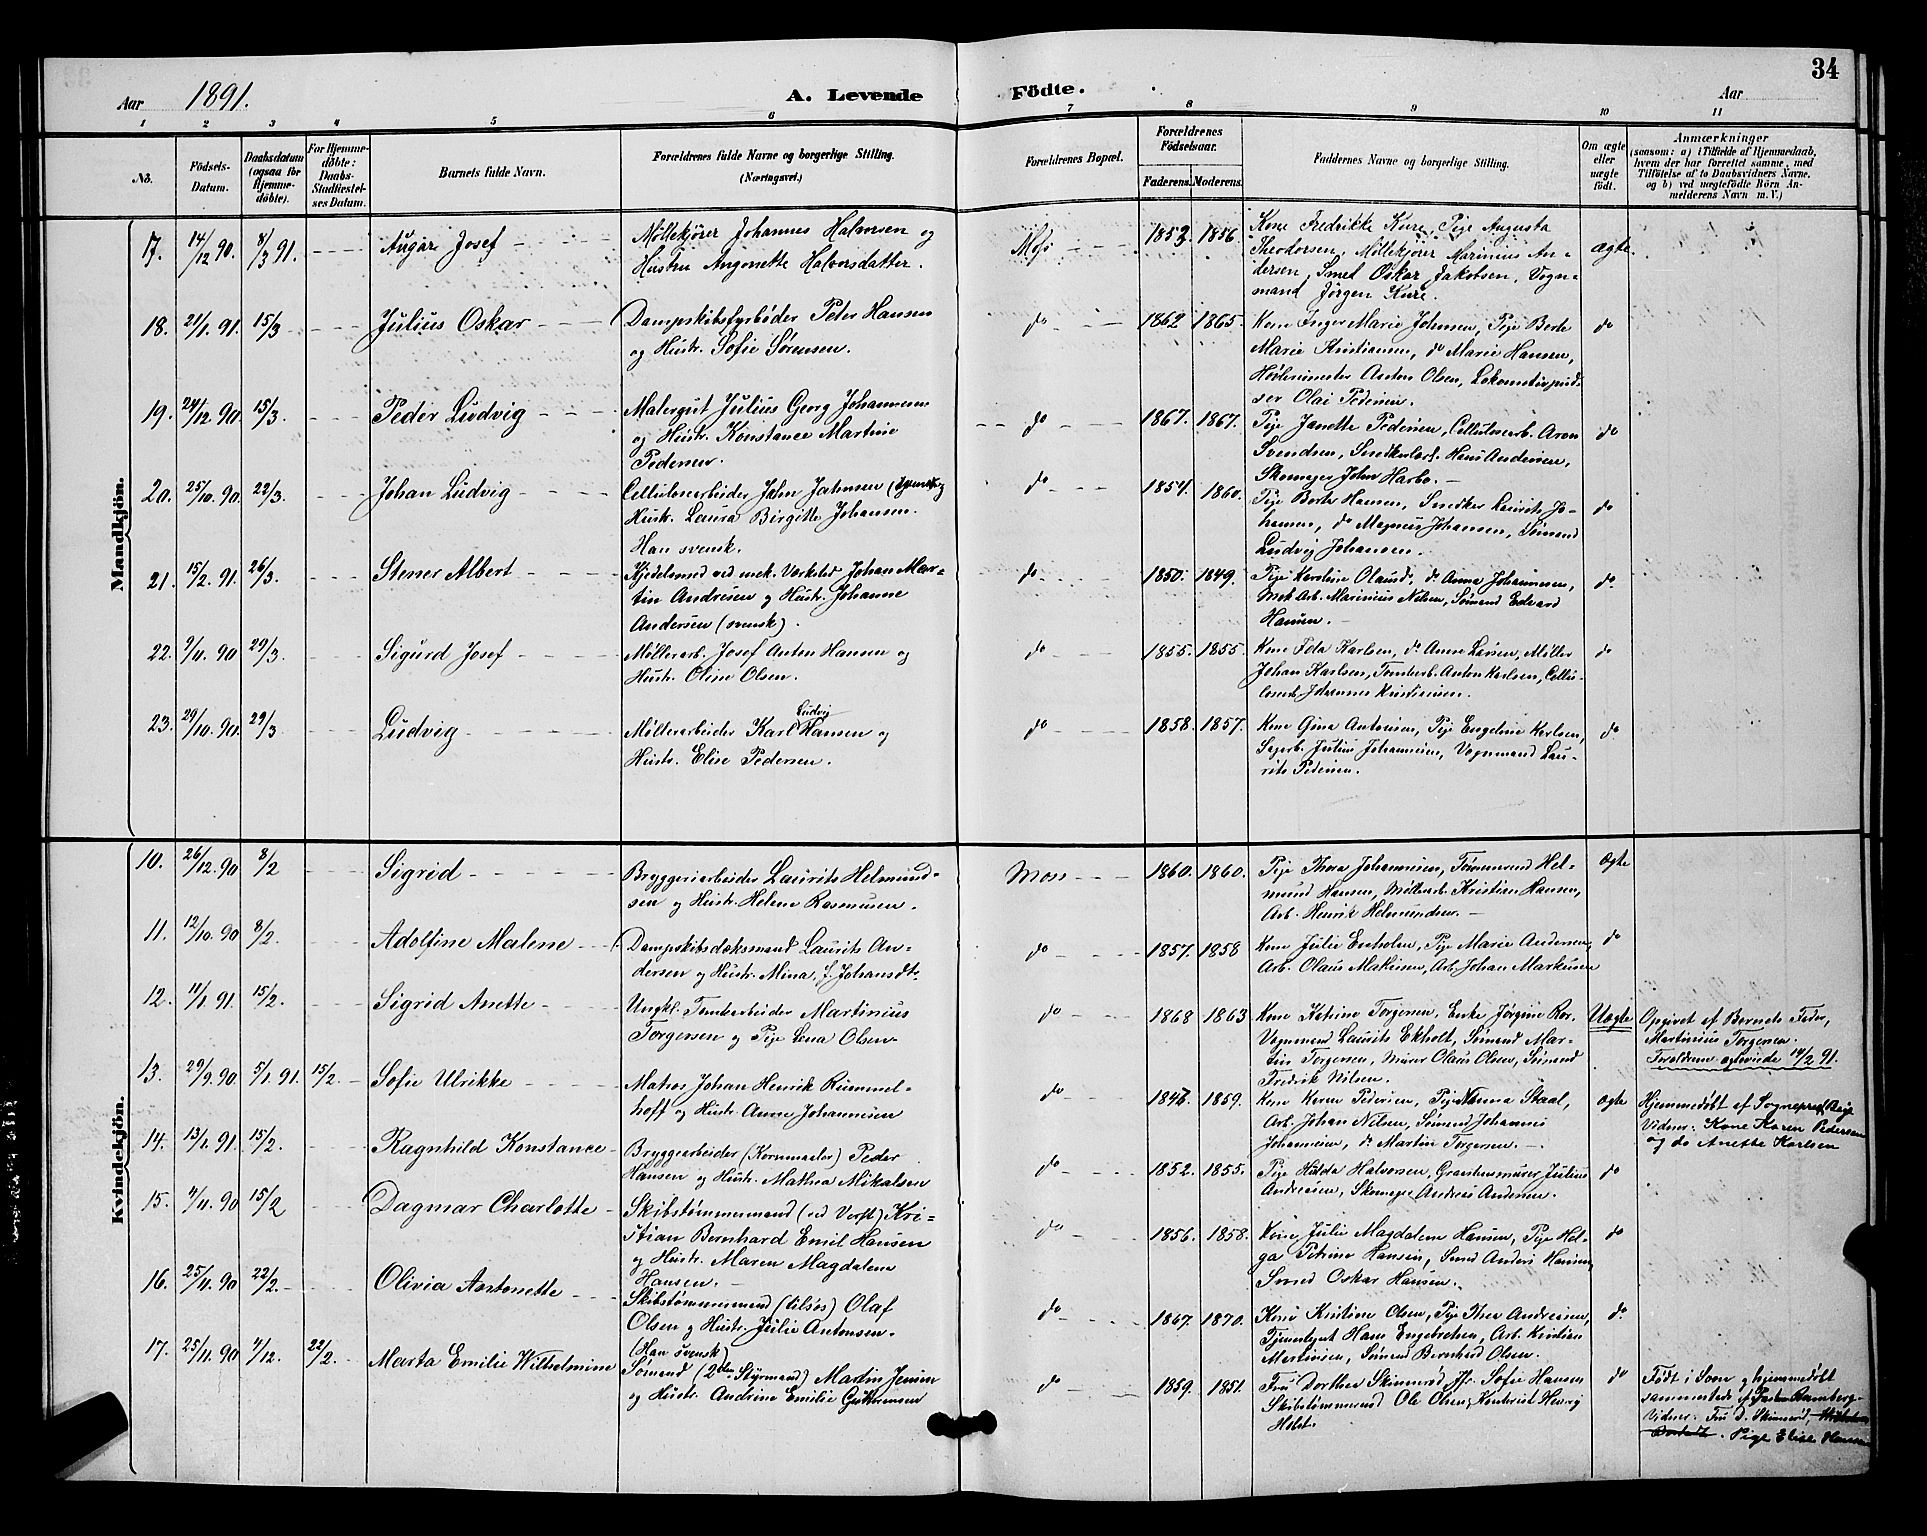 34
Aar 1891. A. Levende Födte. Aar
1 2 3 4 5 6 7 8 9 10 11
No. Födsels-Datum. Daabsdatum (ogsaa for Hjemmedöbte). For Hjemmedöbte: Daabs-Stadfæstelses Datum. Barnets fulde Navn. Forældrenes fulde Navne og borgerlige Stilling. (Næringsvei.) Forældrenes Bopæl. Forældrenes Födselsaar. Faderens. Moderens. Faddernes Navne og borgerlige Stilling. Om ægte eller uægte födt. Anmærkninger (saasom: a) i Tilfælde af Hjemmedaab, hvem der har forrettet samme, med Tilföielse af to Daabsvidners Navne, og b) ved uægtefödte Börn Anmelderens Navn m. V.)
Mandkjön.
17. 14/12 90. 8/3 91. Josef Møllekjører Johannes Halvorsen og Moss 1852 1856 Kone Fredrikke Kure, Pige Augusta ægte
Hustru Angonette Halvorsdatter. Theodorsen, Møllekjører Marinius An-
dersen, Smed Oskar Jakobsen, Vogn-
mand Jörgen Kure.
18. 21/1. 91. 15/3 Julius Oskar Dampskibsfyrbøder Peter Hansen do 1862 1865. Kone Inger Marie Johnsen, Pige Berte do
og Hustr. Sofie Sørensen. Marie Kristiansen, do Marie Hansen,
Anton Olsen, Lokomotivpud-
ser Olai Pedersen.
19. 24/12 90. 15/3 Peder Ludvig Malergut Julius Georg Johannesen do 1867. 1867. Pige Janette Pedersen, Cellulosearb. Aron do
og Hustr. Konstance Martine Svendsen, Snedkerlært. Hans Andersen,
Pedersen. Skomager John Harbo.
20. 25/10. 90. 22/3 Johan Ludvig Cellulosearbeider John Johnsen og do 1854. 1860. Pige Berte Hansen, Snedker Laurits Jo- do
Hustr. Laura Birgitte Johansen. hansen, do Magnus Johansen, Sømand
Han svensk. Ludvig Johansen.
21. 15/2. 91. 26/3. Stener Albert Kjedelsmed ved mek. Værksted Johan Mar- do 1850. 1849. Pige Karoline Olausd. do Anna Johannesen, do.
tin Andresen og Hustr. Johanne Mek. Arb. Marinius Nilsen, Sømand Edvard
Andersen (svensk). Hansen.
22. 9/11. 90 29/3. Sigurd Josef Møllerarb. Josef Anton Hansen og do 1855. 1855. Kone Karlsen, do Anne Larsen, Møller do
Hustr. Oline Olsen. Johan Karlsen, Tomtearb. Anton Karlsen, Cellu-
losearb. Johannes Kristiansen.
23. 29/10. 90. 29/3 Ludvig Møllerarbeider Karl Ludvig Hansen og do 1858. 1857. Kone Gina Antonsen, Pige Engeline Karlsen, do.
Hustr. Elise Pedersen. Sagarb. Julius Johannesen, Vognmand Lau-
rits Pedersen.
Kvindekjön.
10. 26/12. 90 8/2 Sigrid Bryggeriarbeider Laurits Helmund- Moss 1860. 1860. Pige Thea Johannesen, Tømmermd Hel- ægte
sen og Hustr. Helene Rasmusen. mund Hansen, Møllearb. Kristian Hansen,
Arb. Henrik Helmundsen.
11. 12/10. 90 8/2. Adolfine Malene Dampskibsdæksmand Laurits An- do 1857. 1858 Kone Julie Enholen, Pige Marie Andersen, do
dersen og Hustr. Mina, f. Johansdt. Arb. Olaus Mathisen, Arb. Johan Markusen
12. 11/1. 91. 15/2. Sigrid Anette Ungkl. Tomtearbeider Martinius do 1868 1863 Kone Katrine Torgersen, Enke Jørgine Uægte Opgivet af Barnets Fader,
Torgersen og Pige Lena Olsen. Vognmand Laurits Ekholt, Sømand Mar- Martinius Torgersen.
tin Torgersen, Murer Olaus Olsen, Sømand Forældrene ægteviede 14/2 91.
Fredrik Nilsen.
13. 29/9. 90. 5/1. 91. 15/2. Sofie Ulrikke Matros Johan Henrik Rummel- do 1847. 1859. Kone Karen Pedersen, Pige Nanna Staal, ægte Hjemmedøbt af Sognepræst
hoff og Hustr. Anna Johannesen Arb. Johan Nilsen, Sømand Johannes Vidner. Kone Karen Pedersen
Johannesen, do Martin Torgersen. og do Anette Karlsen
14. 13/1. 91. 15/2. Ragnhild Konstance Bryggearbeider (Kornmaaler) Peder do 1852. 1855. Pige Hulda Halvorsen, Graastensmurer Julius do
Hansen og Hustr. Mathea Mikalsen Andresen, Skomager Andreas Andersen.
15. 4/11. 90 15/2 Dagmar Charlotte Skibstømmermand (ved Verft) Kri- do 1856. 1858. Kone Julie Magdalene Hansen, Pige Hel- do
stian Bernhard Emil Hansen ga Petrine Hansen, Smed Anders Hansen,
og Hustr. Maren Magdalene Smed Oskar Hansen.
Hansen.
16. 25/11. 90 22/2. Olivia Antonette Skibstømmermand (tilsøs) Olaf do 1867. 1870. Kone Kristine Olsen, Pige Thea Andresen, do.
Olsen og Hustr. Julie Antonsen. Tjenestgut Hans Engebretsen, Arb. Kristian
(Han svensk) Martinsen, Sømand Bernhard Olsen.
17. 25/11. 90 7/12. 22/2. Marta Emilie Wilhelmine Sømand (2den Styrmand) Martin Jensen do 1859. 1851. Fru Dorthea Skinnerød, Pige Sofie Hansen do Født i Soon og hjemmedøbt
og Hustr. Andrine Emilie Skibstømmermand Ole Olsen, Konditor Henry sammesteds af
Holst. Vidner. Fru D. Skinnerød,
Pige Elise Hansen